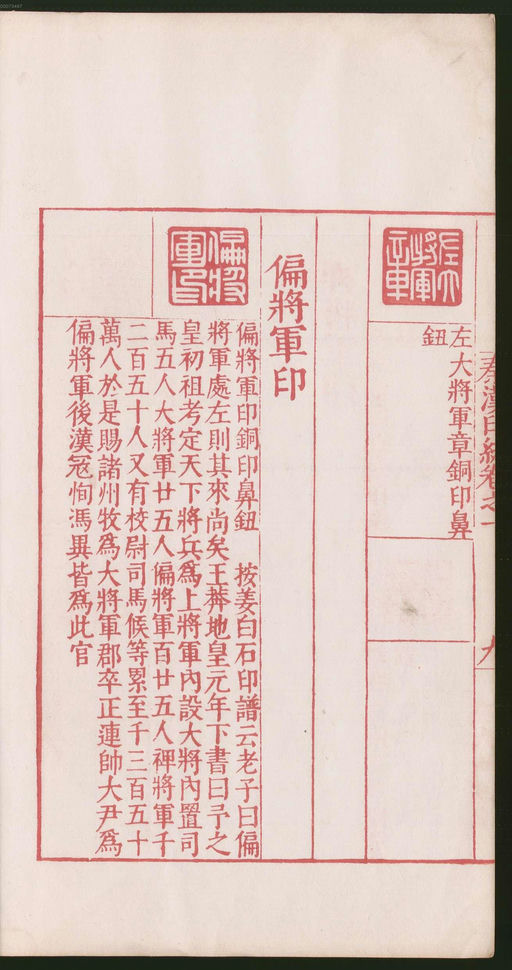 00073487
秦漢印統卷之一
九
左大將軍章
左大將軍章銅印鼻
鈕
偏將軍印
偏將軍印
偏將軍印銅印鼻鈕　按姜白石印譜云老子曰偏
將軍處左則其來尚矣王莽地皇元年下書曰予之
皇初祖考定天下將兵為上將軍內設大將內置司
馬五人大將軍廿五人偏將軍百廿五人裨將軍千
二百五十人又有校尉司馬候等累至千三百五十
萬人於是賜諸州牧為大將軍郡卒正連帥大尹為
偏將軍後漢冦恂馮異皆為此官